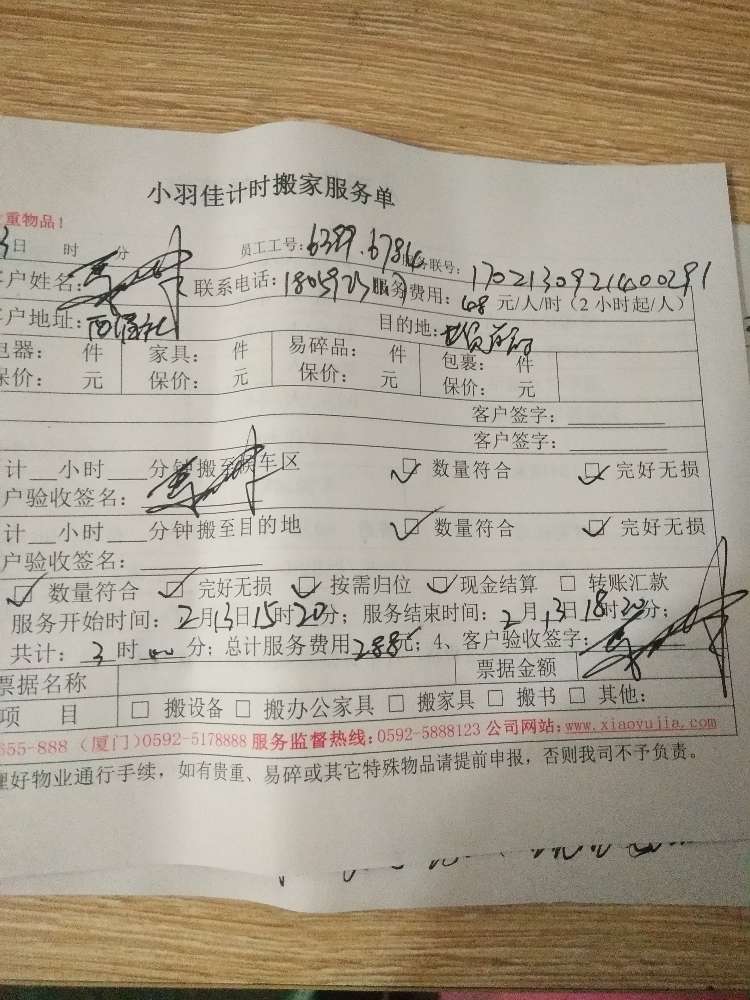 小羽佳计时搬家服务单
重物品！
3日 时 分 员工工号：6389.6784 服务联号：1702130921400291
客户姓名： 联系电话： 服务费用：48元/人/时（2小时起/人）
客户地址： 目的地：
电器： 件 家具： 件 易碎品： 件 包裹： 件
保价： 元 保价： 元 保价： 元 保价： 元
客户签字：
客户签字：
计__小时___分钟搬至候车区 ☑ 数量符合 ☑ 完好无损
户验收签名：
计__小时___分钟搬至目的地 ☑ 数量符合 ☑ 完好无损
户验收签名：
☑ 数量符合 ☑ 完好无损 ☑ 按需归位 ☑ 现金结算 □ 转账汇款
服务开始时间：2月13日15时20分；服务结束时间：2月13日18时20分；
共计：3时00分；总计服务费用288元；4、客户验收签字：
票据名称 票据金额
项 目 □ 搬设备 □ 搬办公家具 □ 搬家具 □ 搬书 □ 其他：
655-888（厦门）0592-5178888 服务监督热线：0592-5888123 公司网站：www.xiaoyujia.com
理好物业通行手续，如有贵重、易碎或其它特殊物品请提前申报，否则我司不予负责。